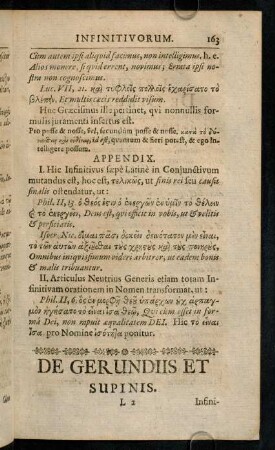 INFINITIVORUM. 163
Cùm autem ipsi aliquid facimus, non intelligimus. h. e.
Alios monere, si quid errent, novimus; Errata ipsi no-
stra non cognoscimus.
Luc. VII, 21. καὶ τυφλοῖς πολλοῖς ἐχαρίσατο τὸ
βλέπειν. Et multis cæcis reddidit visum.
Huc Græcismus ille pertinet, qui nonnullis for-
mulis juramenti insertus est:
Pro posse & nosse, vel, secundùm posse & nosse, κατὰ τὸ
id est, quantum & fieri potest, & ego in-
telligere possum.
APPENDIX.
I. Hic Infinitivus sæpè Latinè in Conjunctivum
mutandus est, hoc est, τελικῶς, ut finis rei seu causa
finalis ostendatur, ut:
Phil. II, 13 ὁ Θεός ἐστιν ὁ ἐνεργῶν ἐν ὑμῖν τὸ θέλειν
& τὸ ἐνεργεῖν, Deus est, qui efficit in vobis, ut & velitis
& perficiatis.
Isocr. Nic.
τῶν αὐτῶν ἀξιοῦσθαι τοὺς χρηστοὺς καὶ τοὺς πονηρούς,
Omnibus iniquissimum videri arbitror, ut eadem bonis
& malis tribuantur.
II. Articulus Neutrius Generis etiam totam In-
finitivam orationem in Nomen transformat, ut:
Phil. II, 6, ὃς ἐν μορφῇ Θεοῦ ὑπάρχων οὐχ ἁρπαγ-
μὸν ἡγήσατο τὸ εἶναι ἴσα Θεῷ, Qui cùm esset in for-
mâ Dei, non rapuit æqualitatem DEI. Hîc τὸ εἶναι
ἴσα pro Nomine ἰσότητα ponitur.
DE GERUNDIIS ET
SUPINIS.
L 2 Infini-